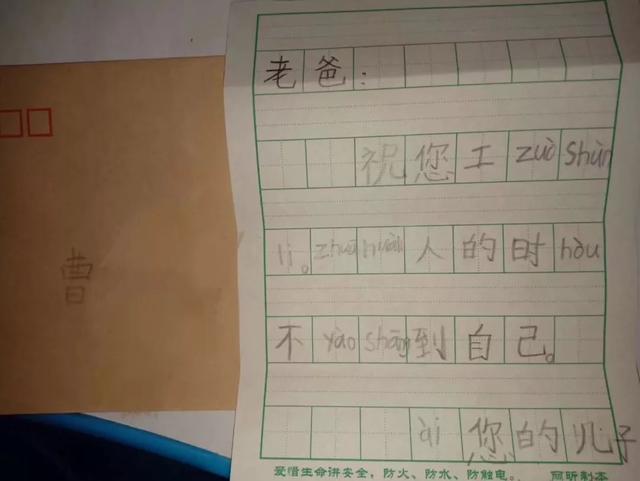 老爸：
祝您工zuò shùn
lì。zhuā huài人的时hòu
不yào shāng到自己。
ài您的儿子
爱惜生命讲安全，防火、防水、防触电。 阿昕制本
曹